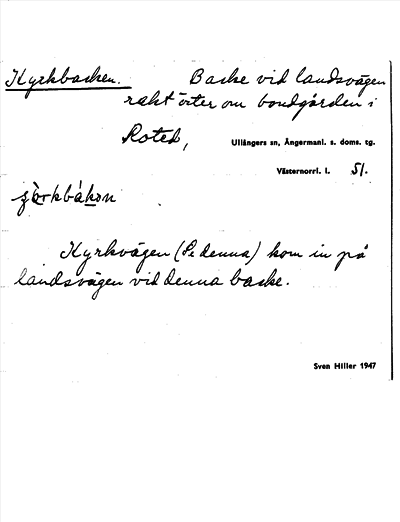 Kyrkbacken. Backe vid landsvägen
rakt öster om bondgården i
Roted,
Ullångers sn, Ångermanl. s. doms. tg.
Västernorrl. l. 51.
kom in på
Kyrkvägen (Se denna) kom in på
landsvägen vid denna backe.
Sven Hiller 1947